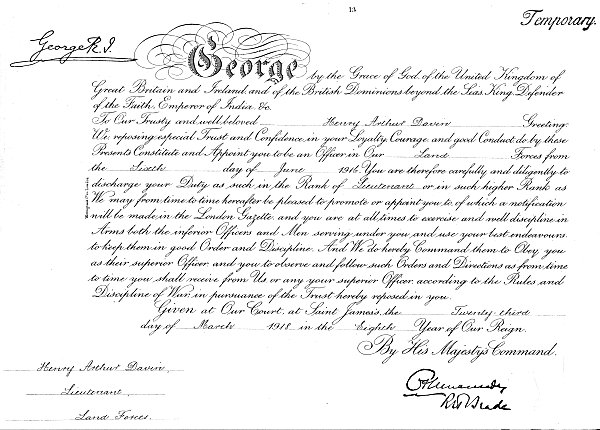 13
Temporary.
George R. I.
George by the Grace of God, of the United Kingdom of
Great Britain and Ireland, and of the British Dominions beyond the Seas, King, Defender
of the Faith, Emperor of India, &c.
To Our Trusty and well beloved Henry Arthur Davin Greeting:
We, reposing especial Trust and Confidence in your Loyalty, Courage, and good Conduct, do by these
Presents Constitute and Appoint you to be an Officer in Our Land Forces from
the Sixth day of June 1916. You are therefore carefully and diligently to
discharge your Duty as such in the Rank of Lieutenant or in such higher Rank as
We may from time to time hereafter be pleased to promote or appoint you to, of which a notification
will be made in the London Gazette, and you are at all times to exercise and well discipline in
Arms both the inferior Officers and Men serving under you and use your best endeavours
to keep them in good Order and Discipline. And We do hereby Command them to Obey you
as their superior Officer, and you to observe and follow such Orders and Directions as from time
to time you shall receive from Us, or any your superior Officer, according to the Rules and
Discipline of War, in pursuance of the Trust hereby reposed in you.
Given at Our Court, at Saint James's, the Twenty third
day of March 1918 in the Eighth Year of Our Reign.
By His Majesty's Command.
Henry Arthur Davin,
Lieutenant,
Land Forces.
R H Brade